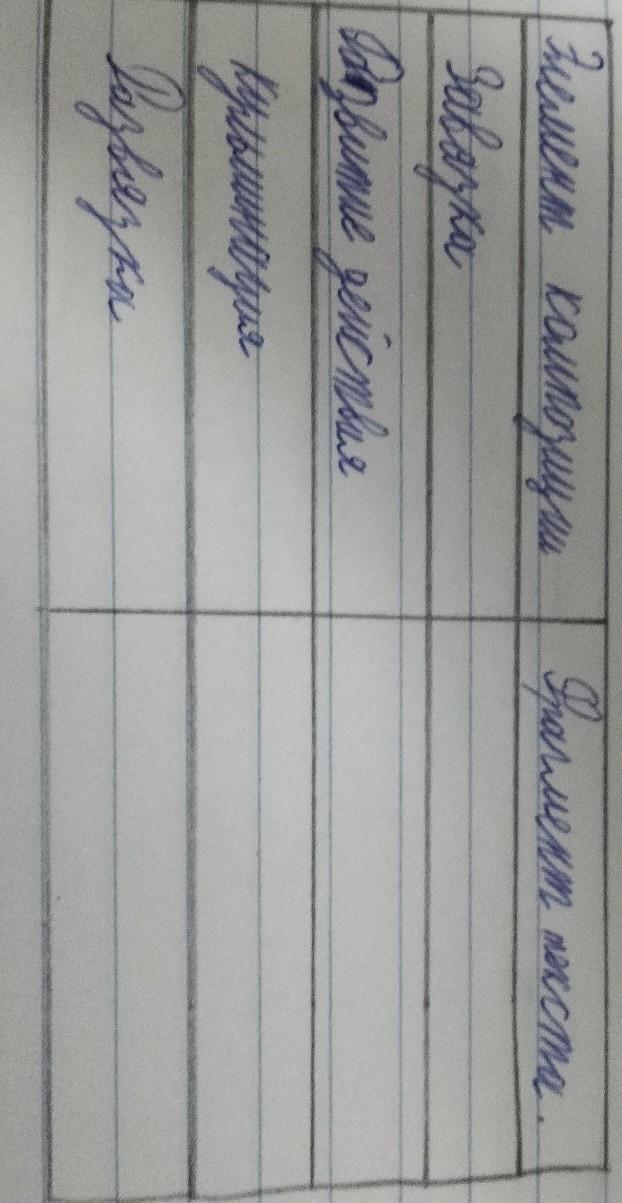 Элемент композиции Фрагмент текста.
Завязка
Развитие действия
Кульминация
Развязка